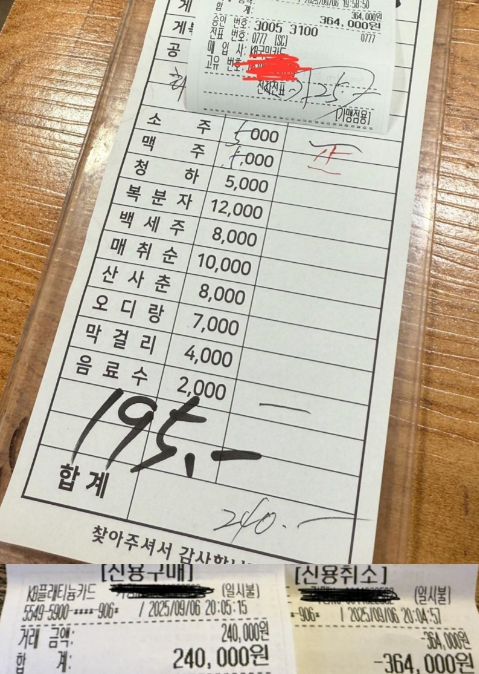 2025/09/06 19:50:50
364,000원
합
364,000원
승인 번호: 3005 3100
전표 번호: 0777 [SC] 0777
매 입 사: KB국민카드
고유 번호:
전자전표
[가맹점용]
소 주 5,000
맥 주 5,000
청 하 5,000
복 분 자 12,000
백 세 주 8,000
매 취 순 10,000
산 사 춘 8,000
오 디 랑 7,000
막 걸 리 4,000
음 료 수 2,000
195.-
합 계 240.-
찾아주셔서 감사합니
[신용구매]
KB플래티늄카드 (일시불)
5549-5900-****-906* / 2025/09/06 20:05:15
거래 금액: 240,000원
합 계: 240,000원
[신용취소]
(일시불)
-906* / 2025/09/06 20:04:57
-364,000원
-364,000원